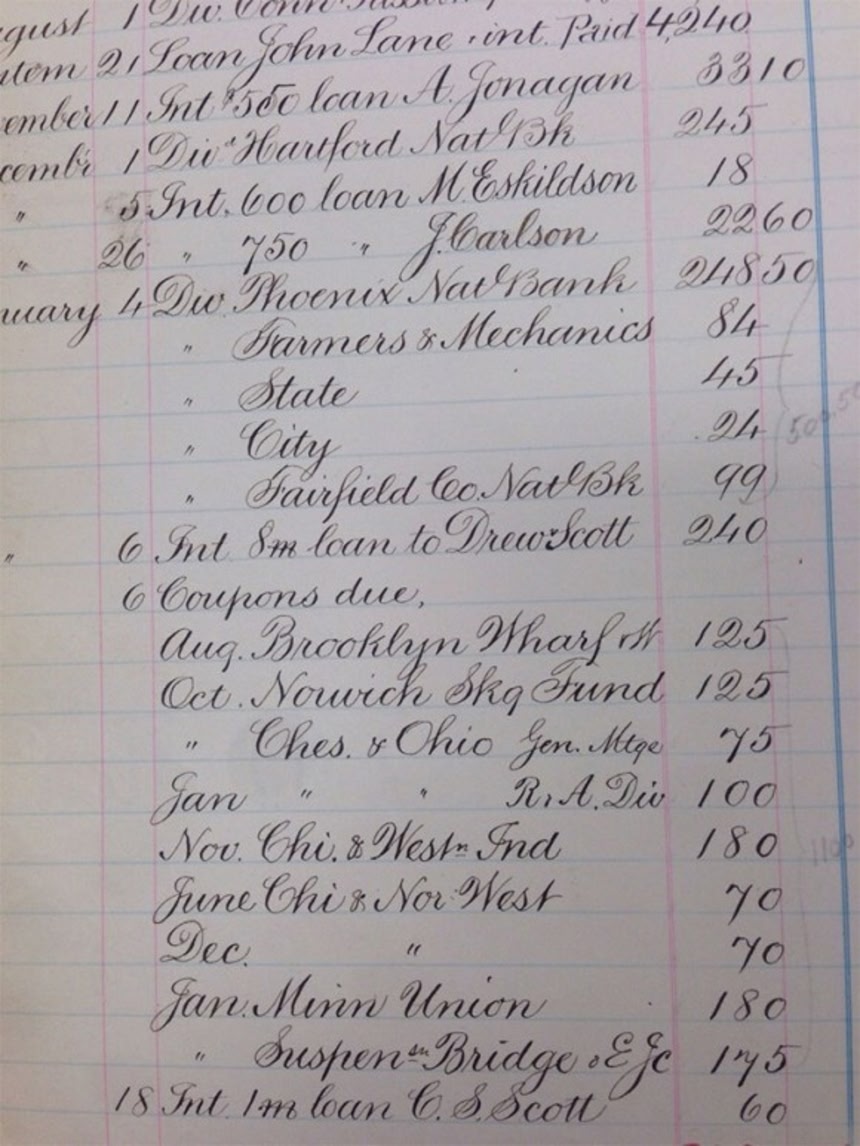 gust 1 Div. Conn
tem 21 Loan John Lane & int. Paid 4,240
ember 11 Int $550 loan A. Jonagan 3310
cembr 1 Div Hartford Natl Bk 245
" 5 Int. 600 loan M. Eskildson 18
" 26 " 750 " J. Carlson 2260
nuary 4 Div. Phoenix Natl Bank 24850
" Farmers & Mechanics 84
" State 45
" City 24
" Fairfield Co. Natl Bk 99
500.50
" 6 Int 8m loan to Drew & Scott 240
6 Coupons due,
Aug. Brooklyn Wharf & W 125
Oct. Norwich Skg Fund 125
" Ches. & Ohio Gen. Mtge 75
Jan " " R. & A. Div 100
Nov. Chi. & Westn Ind 180
1100
June Chi & Nor West 70
Dec. " 70
Jan. Minn Union 180
" Suspensn Bridge & E Jc 175
18 Int 1m loan C. S. Scott 60